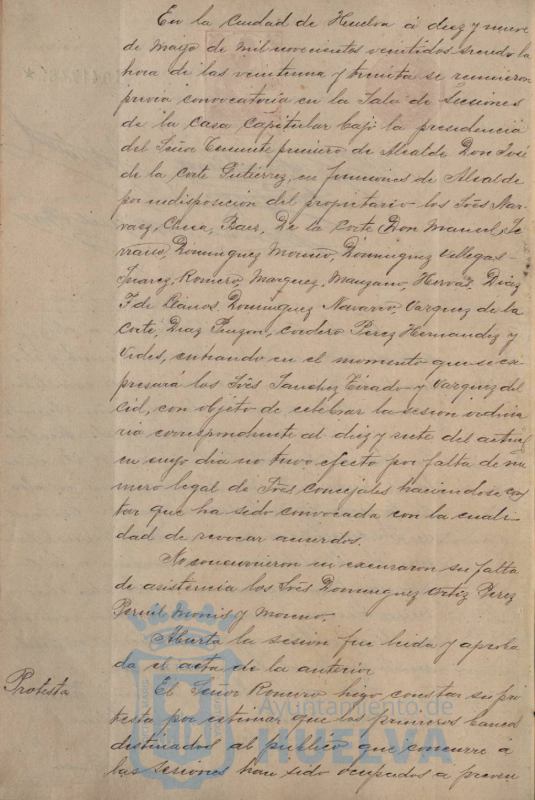 En la Ciudad de Huelva á diez y nueve
de Mayo de mil novecientos veintidos siendo la
hora de las veintiuna y treinta se reunieron
previa convocatoria en la Sala de Sesiones
de la Casa Capitular bajo la presidencia
del Señor Teniente primero de Alcalde Don José
de la Corte Gutiérrez, en funciones de Alcalde
por indisposición del propietario los Sres Nar-
vaez, Checa, Baes, De la Corte Don Manuel, Se-
rrano, Dominguez Moreno, Dominguez Villegas
Suarez, Romero, Marquez, Manzano, Hervás, Diaz
F de Llanos, Dominguez Navarro, Vazquez de la
Corte, Diaz Pinzon, Cordero Perez Hernandez y
Vides, entrando en el momento que se ex-
presará los Sres Sanchez Tirado y Vazquez del
Cid, con objeto de celebrar la sesion ordina-
ria correspondiente al diez y siete del actual
en cuyo dia no tuvo efecto por falta de nú-
mero legal de Sres Concejales haciendose cons-
tar que ha sido convocada con la cuali-
dad de revocar acuerdos.
No concurrieron ni excusaron su falta
de asistencia los Sres Dominguez Ortiz Perez
Monis y Moreno.
Abierta la sesión fue leida y aproba-
da el acta de la anterior
Protesta
El Señor Romero hizo constar su pro-
testa por estimar que los primeros bancos
destinados al publico que concurre á
las sesiones han sido ocupados a preven
Ayuntamiento de
HUELVA